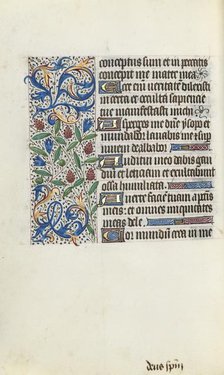 conceptus sum et in peccatis
concepit me mater mea
Ecce eni veritatē dilexisti
incerta et occulta sapiencie
tue manifestasti michi
Asperges me dñe ysopo et
mundabor lavabis me et sup
nivem dealbabor
Auditui meo dabis gau
dium et leticiam et exultabunt
ossa humiliata
Averte faciem tuam a pctis
meis et omnes iniquitates
meas dele
Cor mundum crea in me
deus spiri